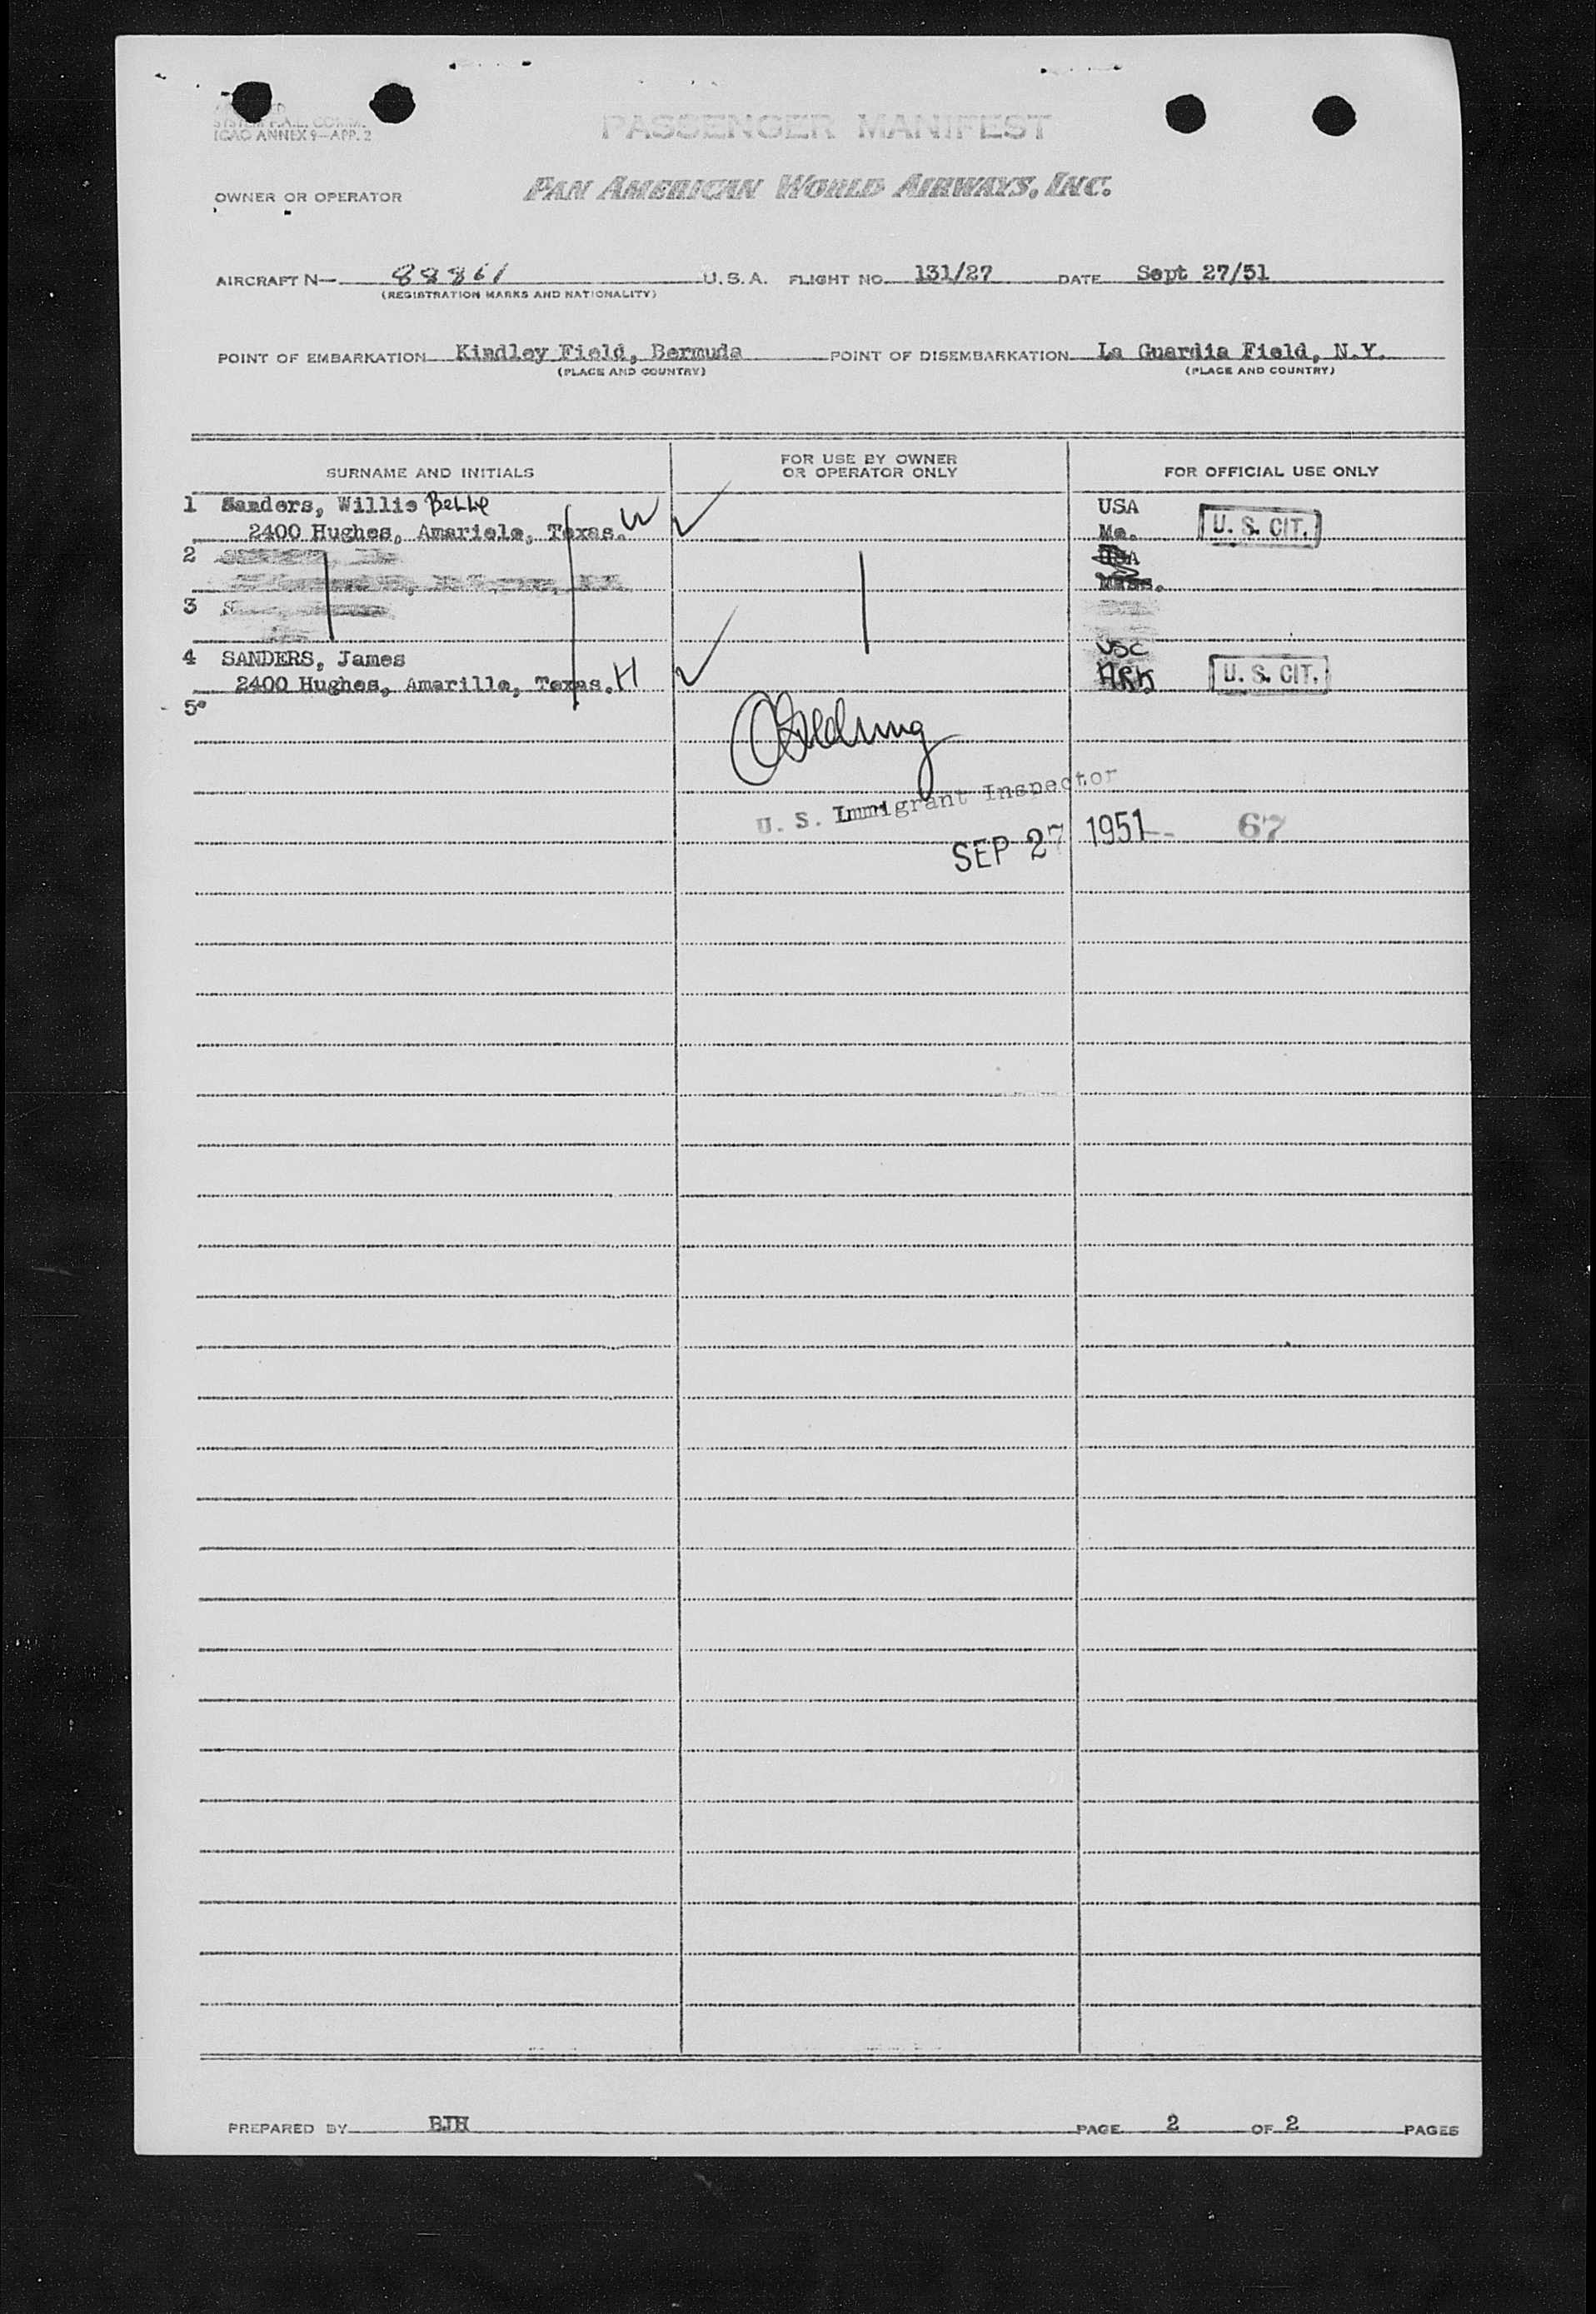 SYSTEM F.A.L. COMM.
ICAO ANNEX 9—APP. 2
PASSENGER MANIFEST
OWNER OR OPERATOR PAN AMERICAN WORLD AIRWAYS, INC.
AIRCRAFT N— 88861 U. S. A. FLIGHT NO. 131/27 DATE Sept 27/51
(REGISTRATION MARKS AND NATIONALITY)
POINT OF EMBARKATION Kindley Field, Bermuda POINT OF DISEMBARKATION La Guardia Field, N.Y.
(PLACE AND COUNTRY) (PLACE AND COUNTRY)
SURNAME AND INITIALS FOR USE BY OWNER OR OPERATOR ONLY FOR OFFICIAL USE ONLY
1 Sanders, Willie Belle USA
2400 Hughes, Amariele, Texas. W Mo. U. S. CIT.
2 USA
Mass.
3
4 SANDERS, James USC
2400 Hughes, Amarillo, Texas. H ARK U. S. CIT.
5
U. S. Immigrant Inspector
SEP 27 1951 67
PREPARED BY BJH PAGE 2 OF 2 PAGES